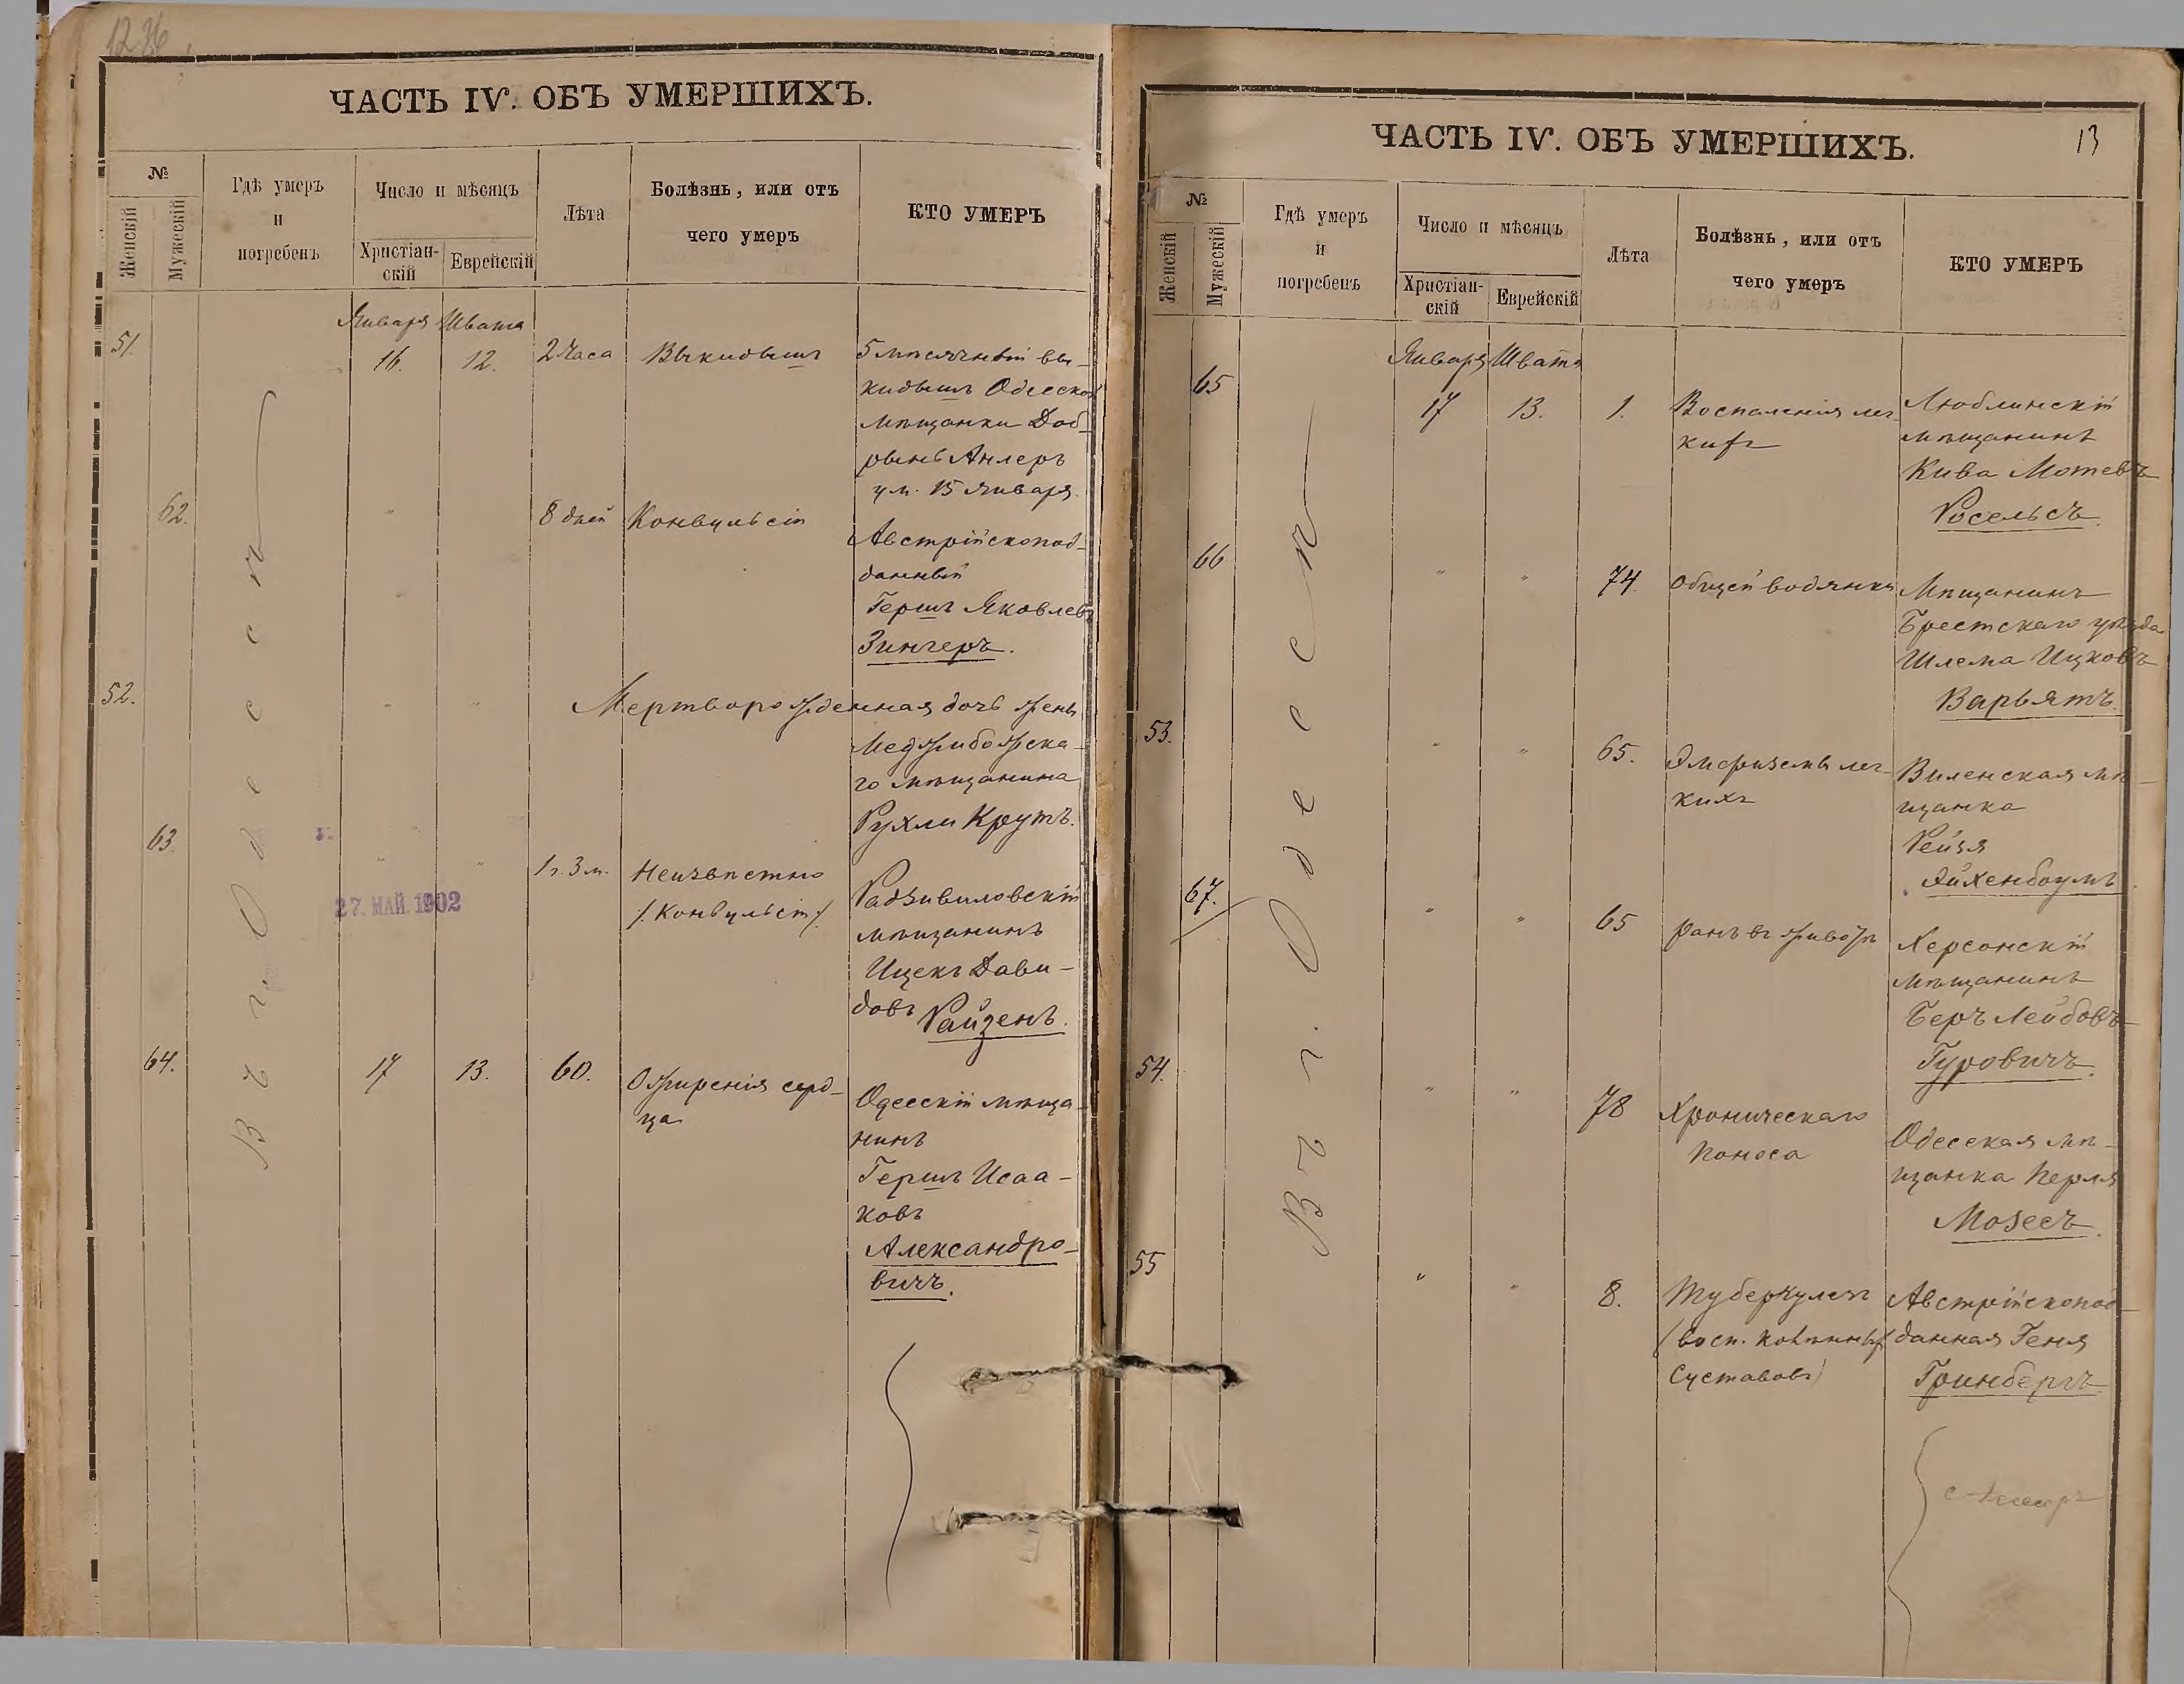 ЧАСТЬ IV. ОБЪ УМЕРШИХЪ.
№
Женскій
Мужескій
Гдѣ умеръ
и
погребенъ
Число и мѣсяцъ
Христіан-
скій
Еврейскій
Лѣта
Болѣзнь, или отъ
чего умеръ
КТО УМЕРЪ
Января Швата
51.
16.
12.
2 часа
Выкидышъ
5 мѣсячный вы-
кидышъ Одесской
мѣщанки Доб-
рынь Анлеръ
ум. 15 Января.
62.
"
8 дней
Конвульсіи
Австрійскопод-
данный
Гершъ Яковлевъ
Зингеръ.
52.
"
"
Мертворожденная дочь жены
Меджибожска-
го мѣщанина
Рухли Крутъ.
63.
"
"
1 г. 3 м.
Неизвѣстно
/. Конвульсіи /.
Радзивиловскій
мѣщанинъ
Ицекъ Дави-
довъ Райзенъ.
27. МАЙ. 1902
64.
17
13.
60.
Ожиренія серд-
ца
Одесскій мѣща-
нинъ
Гершъ Исаа-
ковъ
Александро-
вичъ.
Въ г. Одессѣ
ЧАСТЬ IV. ОБЪ УМЕРШИХЪ.
13
№
Женскій
Мужескій
Гдѣ умеръ
и
погребенъ
Число и мѣсяцъ
Христіан-
скій
Еврейскій
Лѣта
Болѣзнь, или отъ
чего умеръ
КТО УМЕРЪ
Января Швата
65
17
13.
1.
Воспаленія лег-
кихъ
Люблинскій
мѣщанинъ
Кива Мотевъ
Росельсъ.
66
"
"
74.
Общей водянки
Мѣщанинъ
Брестскаго уѣзда
Шлема Ицковъ
Варьятъ.
53.
"
"
65.
Эмфиземы лег-
кихъ
Виленская мѣ-
щанка
Рейзя
Эйхенбоумъ.
67.
"
"
65
Ранъ въ животѣ
Херсонскій
мѣщанинъ
Беръ Лейбовъ
Гуровичъ.
54.
"
"
78
Хроническаго
поноса
Одесская мѣ-
щанка Перля
Мозесъ.
55
"
"
8.
Туберкулезъ
(восп. колѣнныхъ
суставовъ)
Австрійскопод-
данная Геня
Гринбергъ
Въ г. Одессѣ